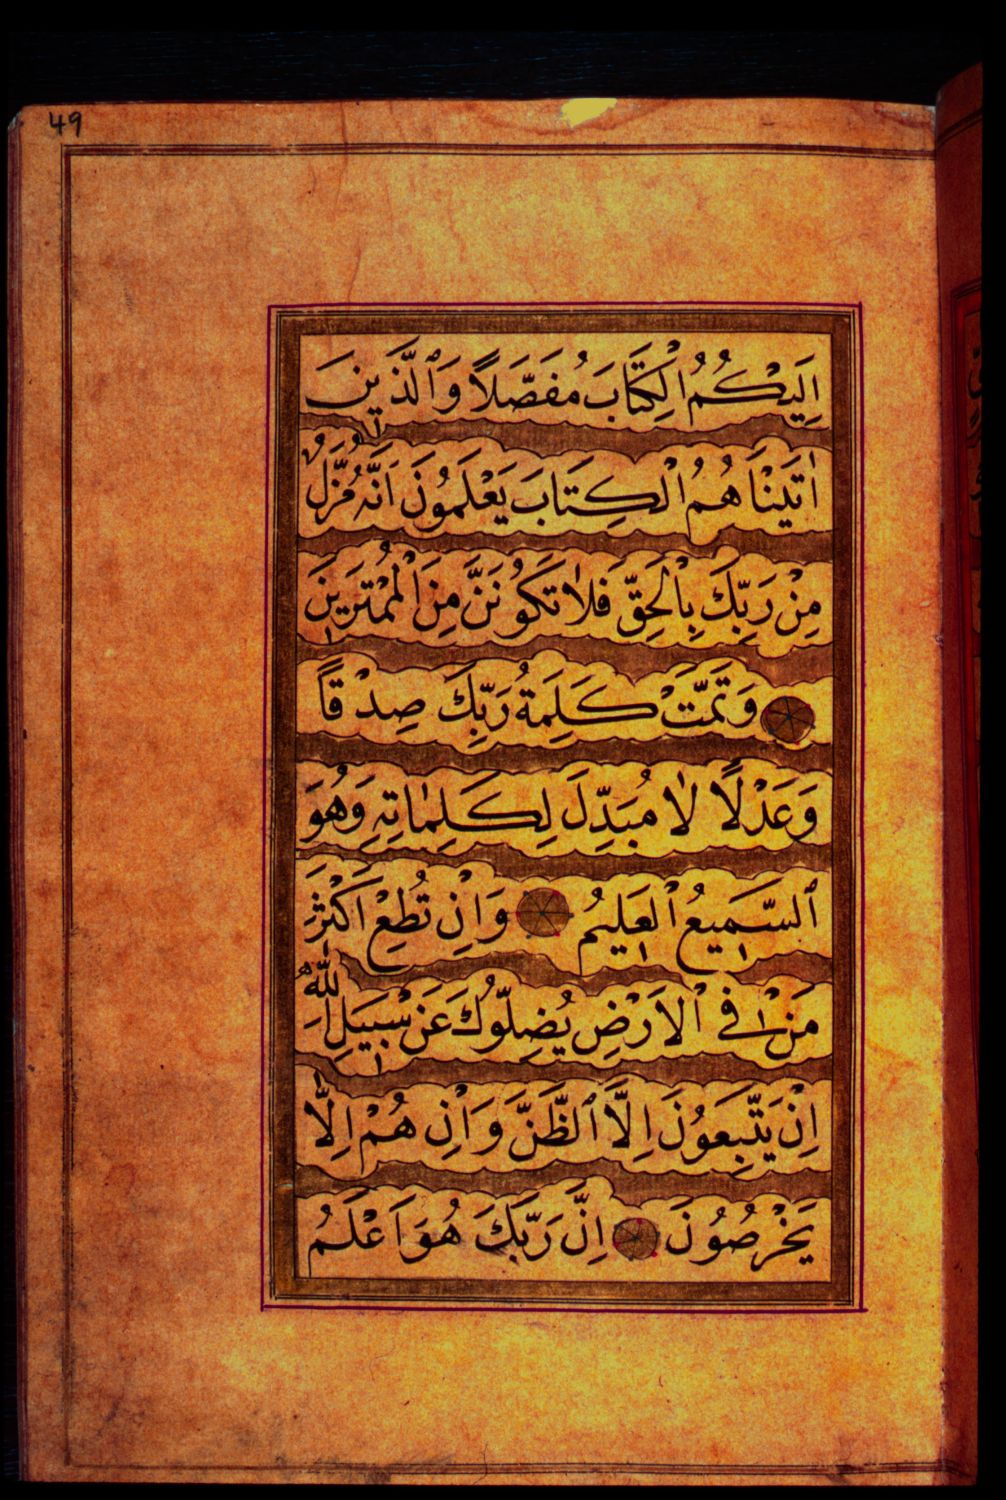 49
اِلَيْكُمُ الْكِتَابَ مُفَصَّلاً وَالَّذٖينَ
اٰتَيْنَاهُمُ الْكِتَابَ يَعْلَمُونَ اَنَّهُ مُنَزَّلٌ
مِنْ رَبِّكَ بِالْحَقِّ فَلاٰ تَكُونَنَّ مِنَ الْمُمْتَرٖينَ
وَتَمَّتْ كَلِمَةُ رَبِّكَ صِدْقاً
وَعَدْلًا لاٰ مُبَدِّلَ لِكَلِمٰاتِهٖ وَهُوَ
السَّمٖيعُ الْعَلٖيمُ وَاِنْ تُطِعْ اَكْثَرَ
مَنْ فِى الْاَرْضِ يُضِلُّوكَ عَنْ سَبٖيلِ اللّٰهِ
اِنْ يَتَّبِعُونَ اِلَّا الظَّنَّ وَاِنْ هُمْ اِلّٰا
يَخْرُصُونَ اِنَّ رَبَّكَ هُوَ اَعْلَمُ